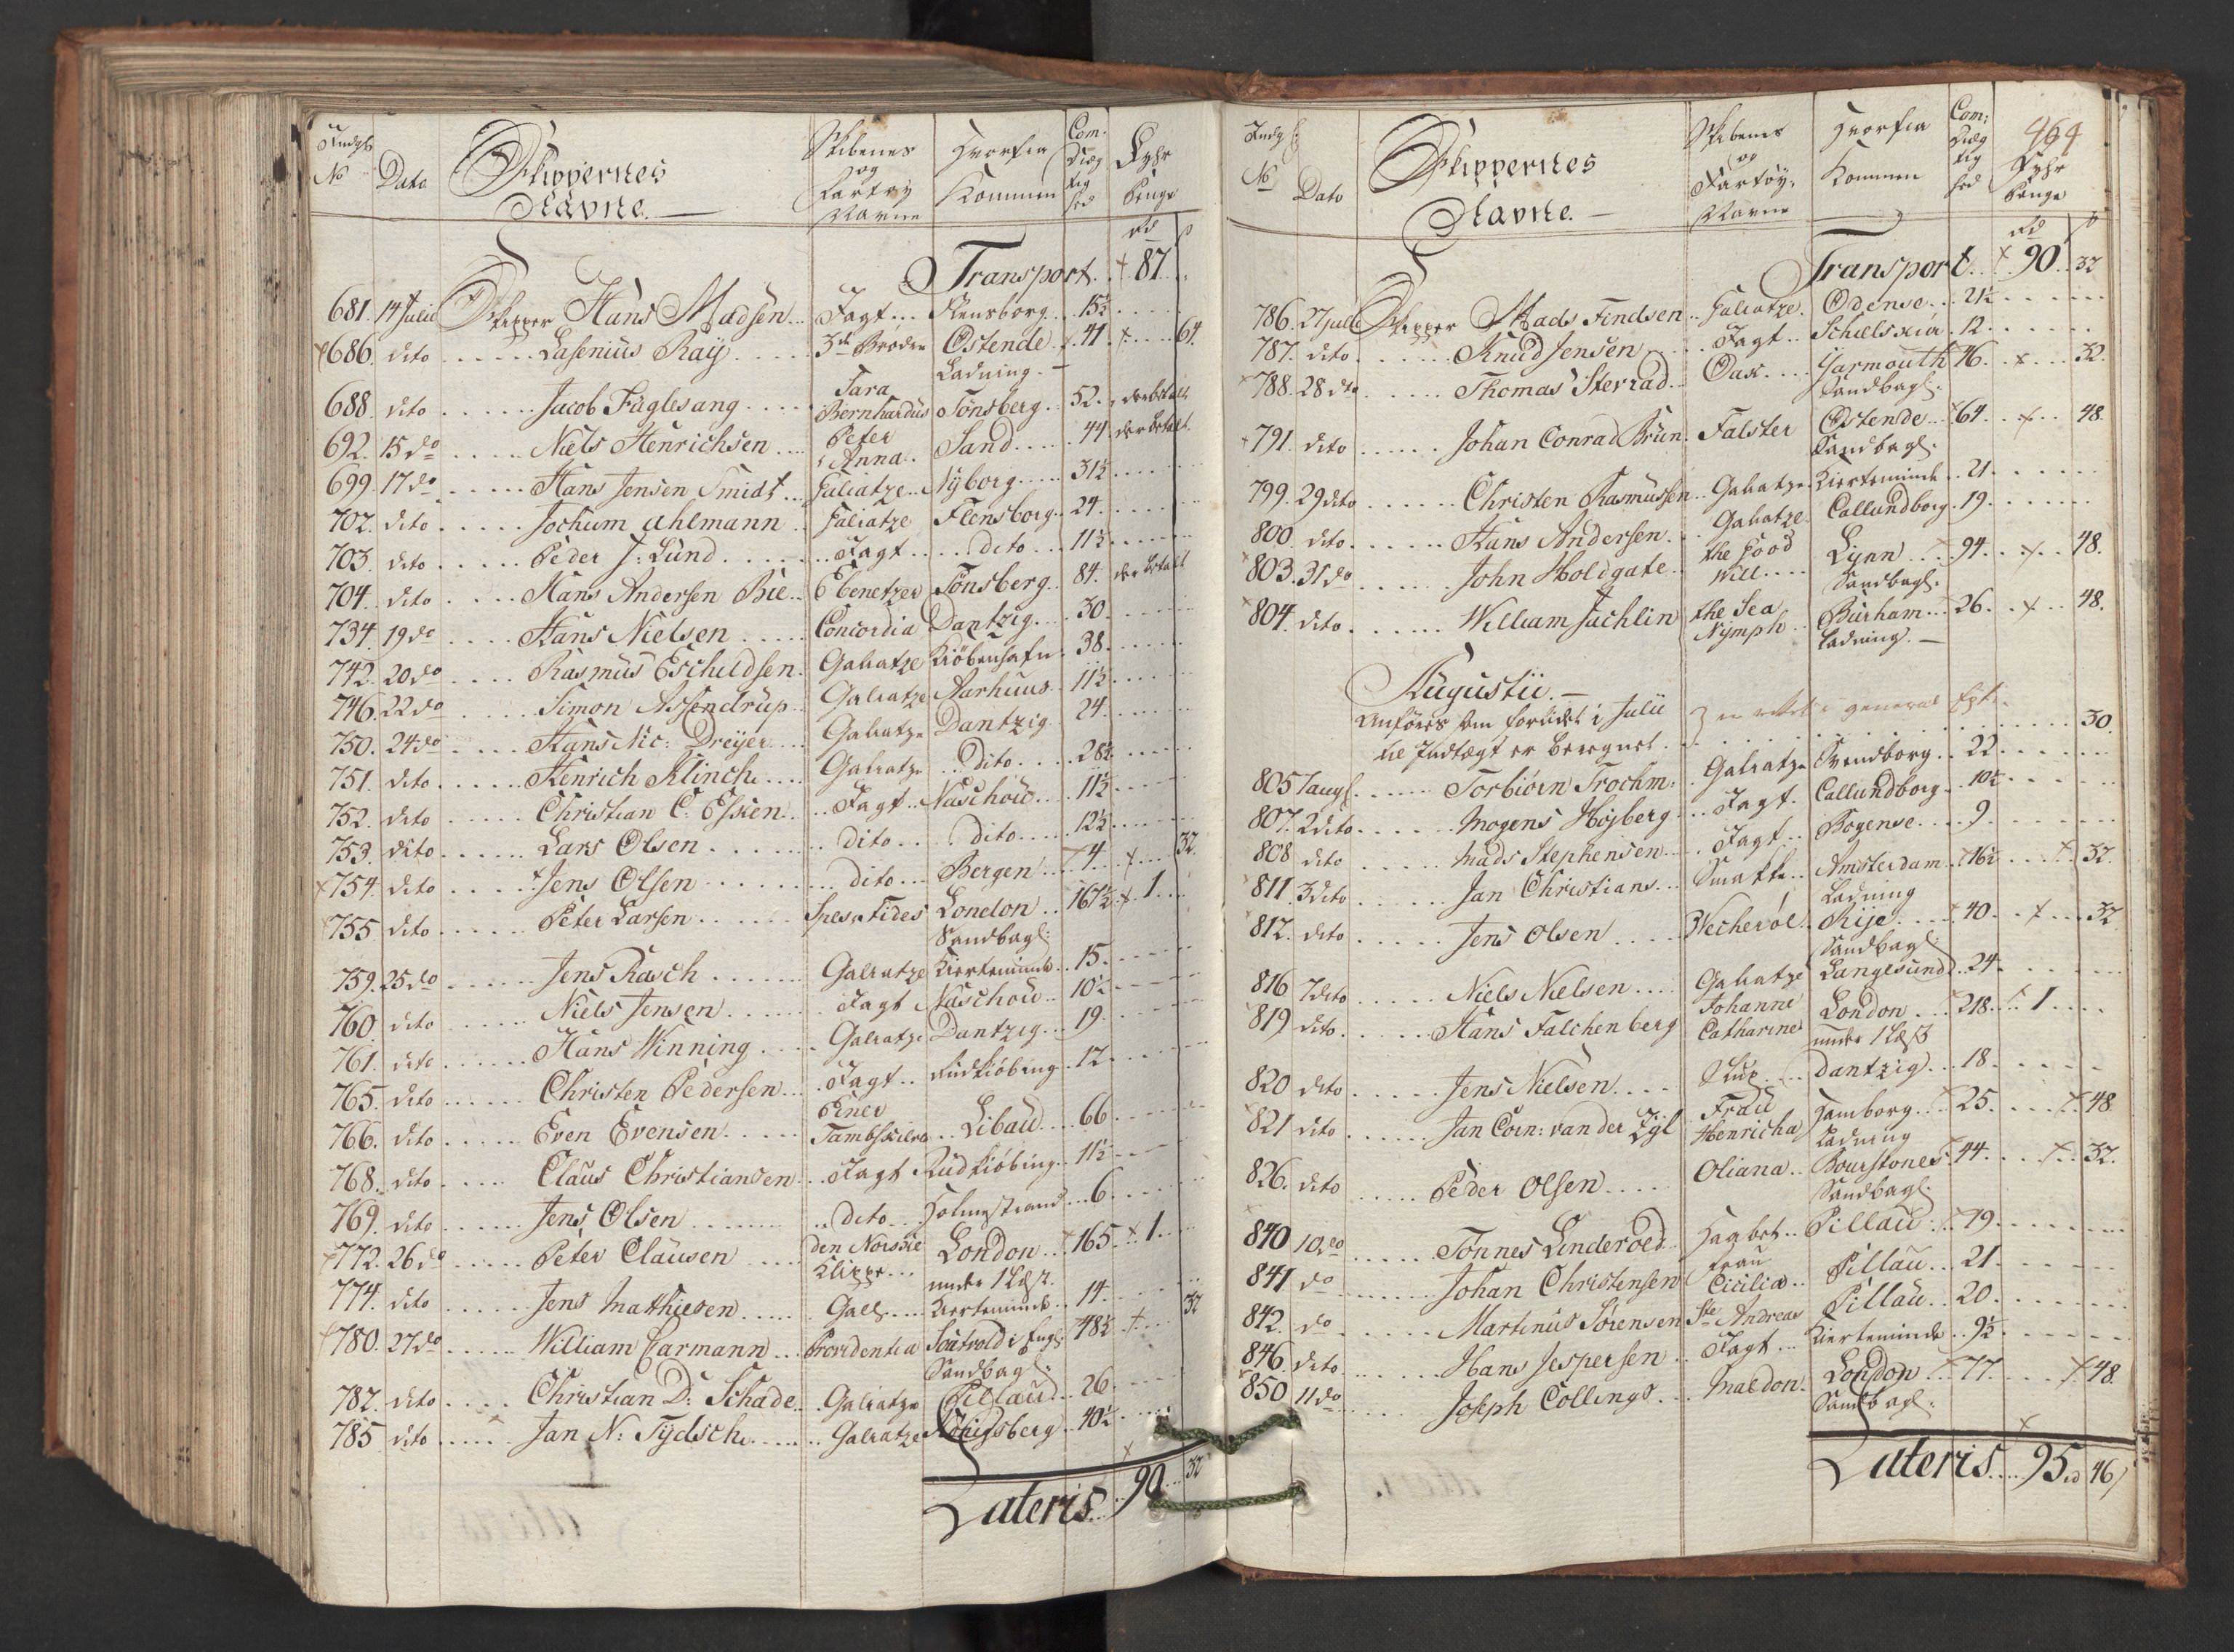 Indgf
No
Dato
Skippernes
Navne.
Skibenes
og
Fartøy
Navne
Hvorfra
Kommen
Com.
Dræg
tig
hed
Fyhr
Penge
rd ß
Transport. 87 . .
681. 14 Julii Skipper Hans Madsen .. Jagt ... Flensborg .. 15½ . . .
686. dito . . . . . . Lasenius Raÿ . . . . 3de Brødre Ostende . 41 . . . 64.
Ladning. —
688. dito . . . . . . Jacob Fuglesang . . . . Tara Bernhardus Tönsberg . 52. derbetalt
692. 15 do . . . . . Niels Henrichsen . . . Peter Anna . . Sand . . . . 44 der betalt
699. 17 do . . . . . . Hans Jensen Smidt . . . Galiatze . . Nÿborg . . . . 31½ . . .
702. dito . . . . . Jochum Ahlmann . . Galiatze Flensborg . . 24 . . .
703. dito . . . . . Peder J: Lund . . . . . . Jagt . . . . dito . . . 11½ . . .
704. dito . . . . Hans Andersen Bie . . Ebenetzer Tönsberg . . 84. der betalt
734. 19 do . . . . Hans Nielsen . . . . . Concordia Dantzig . . . 30. . . .
742. 20 do . . . . Rasmus Eschildsen . Galiatze Kiöbenhafn . 38. . . .
746. 22 do . . . . . Simon Assendrup . . Galiatze Aarhuus . 11½ . . .
750. 24 do . . . . Hans Nic: Dreÿer . . . Galiatze Dantzig . . 24. . . .
751. dito . . . . . Henrich Klinch . . . . Galiatze . . . dito . . . . 28½ . . .
752. dito . . . . . Christian C. Esken . . . . Jagt . . Naschou . . . 11½ . . .
753. dito . . . . . . Lars Olsen . . . . . . . dito . . . dito . . . . 12½ . . .
754. dito . . . . . Jens Olsen . . . . . . . . dito . . . Bergen . . . 4 . . . 32.
755 dito . . . . . . Peter Larsen . . . . . . Spes et Fides London . . 167½ . 1 . . .
Sandbagl:
759. 25 do . . . . . Jens Rasch . . . . . . Galiatze Kierteminde . . 15. . . .
760 dito . . . . . Niels Jensen . . . . . . Jagt Naschou . . 10½ . . .
761. dito . . . . . . Hans Winning . . . . Galiatze Dantzig . . . 19 . . .
765. dito . . . . . . Christen Pedersen . . . Jagt . . Rudkiöbing . . 12. . . .
766. dito . . . . . Even Evensen . . . . Einer Tambskielver . . Libau . . . . 66 . . .
768. dito . . . . Claus Christiansen . . . Jagt Rudkiöbing . . 11½ . . .
769. dito . . . . . . Jens Olsen . . . . . . . . dito . . . Holmestrand . . . 6 . . .
772. 26 do . . . . . . Peter Clausen . . . . . den Norske Klippe . . . London . . 165. . 1. . .
under 1 Læst.
774. dito . . . . . . Jens Mathiesen . . . . . Gall . . . . Kierteminde . . 14. . . .
780. 27 do . . . . . . William Carmann . . . Providentia Soutvold i Engl 48½ . . . 32
Sandbagl.
782. dito . . . . Christian D: Schade . . Galiatze Pillau . . 26 . . .
785 dito . . . . . . Jan N: Tÿdsch . . . . . Galiatze Königsberg . 40½ . . .
Lateris . . 90 . . . 32
464
Indgf
No
Dato
Skippernes
Navne. —
Skibenes
og
Fartøy
Navne
Hvorfra
Kommen
Com:
Dræg
tig
hed
Fyhr
Penge
rd ß
Transport . . 90 . . 32
786. 27 Julii Skipper Mads Findsen . . Galiatze . Odense . . . 21½ . . .
787. dito . . . . . . Knud Jensen . . . . . Jagt . . Schielskiør . 12 . . .
788. 28 dto . . . . . Thomas Sterrad . . . Oak . . . . Yarmouth 46. . . . 32.
Sandbagl.
791. dito . . . . . Johan Conrad Brun . Falster Ostende . . 64 . . . 48.
Sandbagl.
799. 29 dito . . . . . . Christen Rasmussen . . Galiatze Kierteminde . . 21. . . .
800. dito . . . . . . Hans Andersen . . . Galiatze . Callundborg . 19. . . .
803. 31 do . . . . . . John Holdgate . . the Good Will . . . . Lÿnn . . . 94. . . . 48.
Sandbagl.
804. dito . . . . . . William Jachlin the Sea Nÿmph . . Burham . . . 26. . . . 48.
Ladning. —
Augustii. —
Anføres som forledet i Julii
til Indtægt er beregnet . . . . . . . . . 30.
805 1 aug . . . . . Torbiørn Trochm: . . Galiatze Svendborg . . 22 . . .
807. 2 dito . . . . . . Mogens Højberg . . . Jagt . Callundborg . . 10½ . . .
808 dito . . . . . . Mads Stephensen . . . . Jagt . . Bogense . . . . 9 . . .
811. 3 dito . . . . . . Jan Christians . . . Smakke . . Amsterdam . . 16½ . . . 32.
Ladning
812. dito . . . . . . Jens Olsen . . . . Wecherøe . . Rije . . . . 40. . . . 32
Sandbagl.
816 7 dito . . . . . . Niels Nielsen . . . . Galiatze Langesund . . 24. . . .
819 dito . . . . . . Hans Falchenberg Johanne Catharine London . . . 218. . 1 . . .
under 1 Læst
820 dito . . . . . . Jens Nielsen . . . . Slup . . . . Dantzig . . . 18 . . .
821 dito . . . . . . Jan Corn: van der Zÿl Frau Henricha Hamborg . . . 25. . . . 48
Ladning
826. dito . . . . . . Peder Olsen . . . . Oliana . . Bourstones . 44. . . . 32.
Sandbagl.
840 10 do . . . . . . Tønnes Linderoed . . Haabet . . Pillau . . . 79. . . .
841 do . . . . . . Johan Christensen Frau Cicilia . . Pillau . . . 21 . . .
842. do . . . . . . Martinus Sørensen Ste Andreas Pillau . . 20. . . .
846. dito . . . . . . Hans Jespersen . . Jagt . . . Kierteminde . . 9½ . . .
850 11 do . . . . . Joseph Collings . . . Maldon . London . . 77. . . . 48
Sandbagl.
Lateris . . . . 95 rd 46